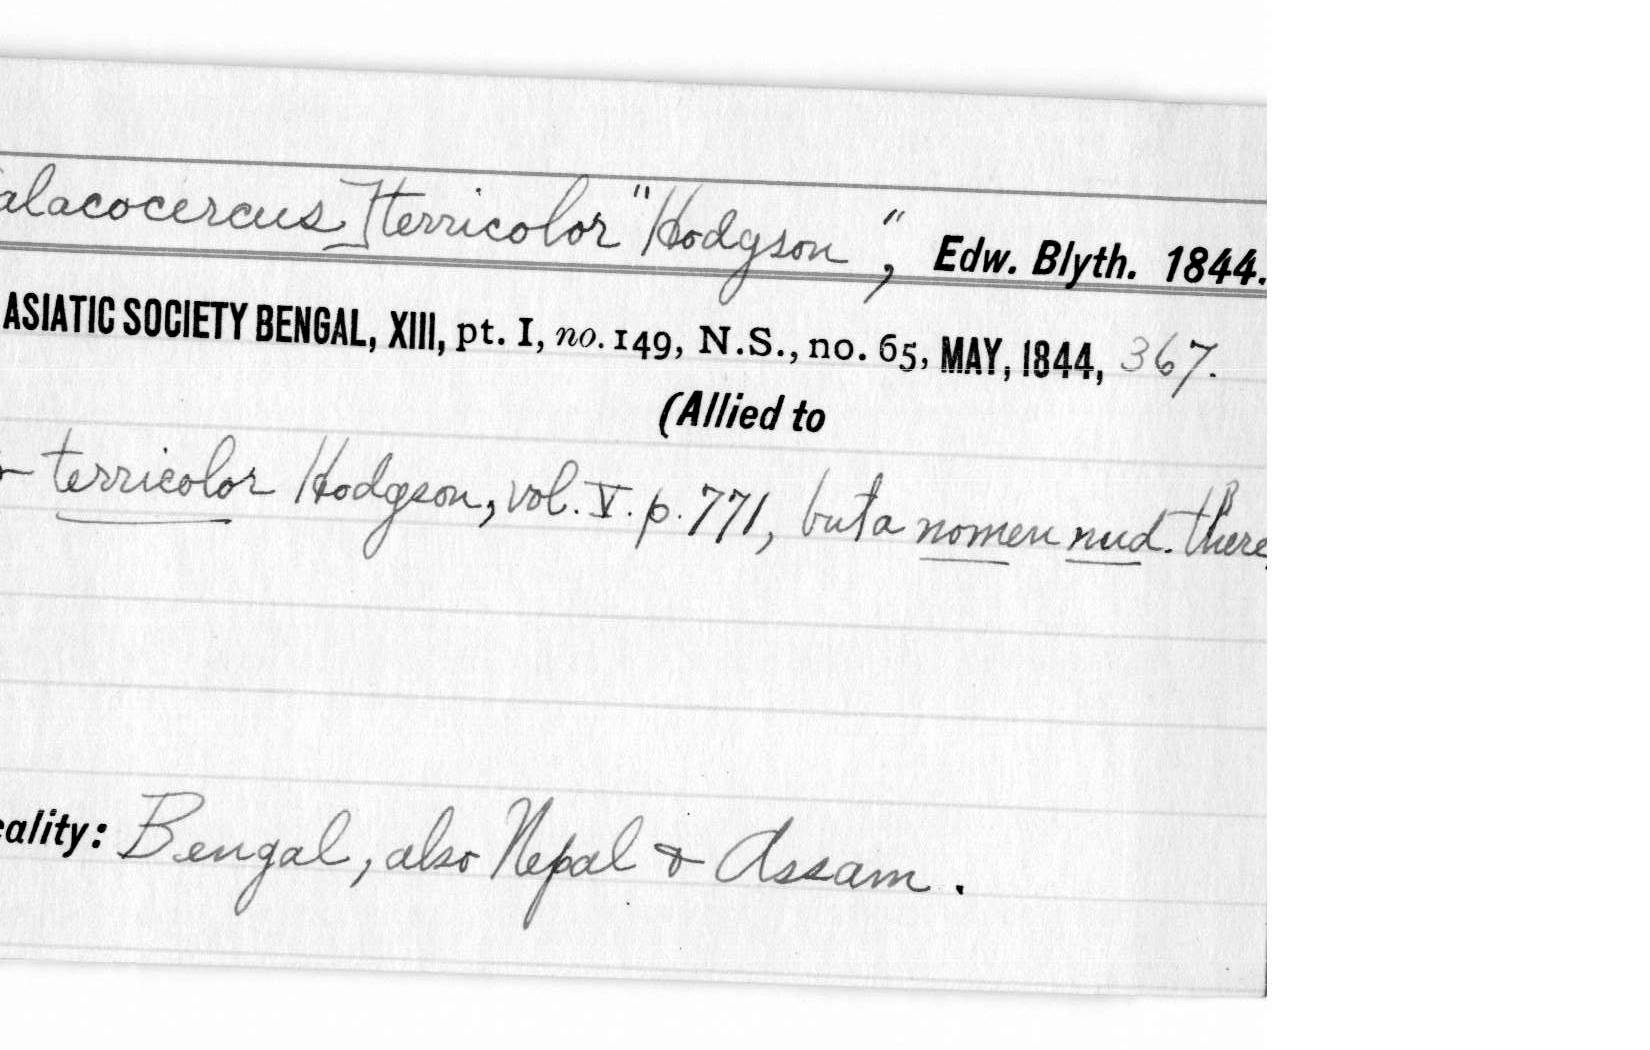 alacocercus terricolor "Hodgson", Edw. Blyth. 1844.
ASIATIC SOCIETY BENGAL, XIII, pt. I, no. 149, N.S., no. 65, MAY, 1844, 367.
(Allied to
terricolor Hodgson, vol. V. p. 771, but a nomen nud. there,
cality: Bengal, also Nepal & Assam.